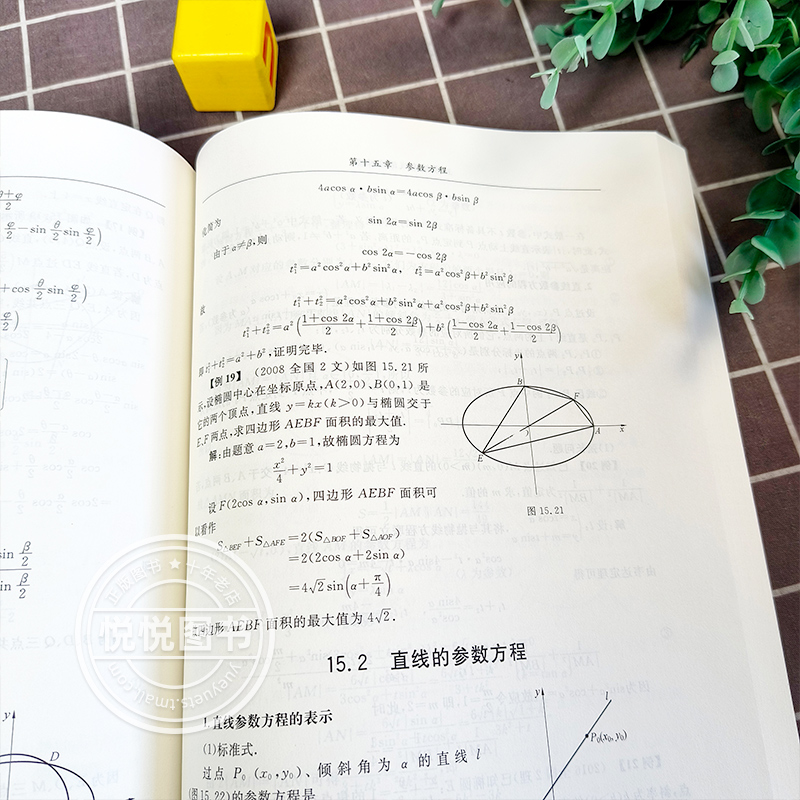 第十五章 参数方程
4acos α·bsin α=4acos β·bsin β
化简为
sin 2α=sin 2β
由于α≠β,则
cos 2α=-cos 2β
t₁²=a²cos²α+b²sin²α, t₂²=a²cos²β+b²sin²β
故
t₁²+t₂²=a²cos²α+b²sin²α+a²cos²β+b²sin²β
t₁²+t₂²=a²((1+cos 2α)/2+(1+cos 2β)/2)+b²((1-cos 2α)/2+(1-cos 2β)/2)
即t₁²+t₂²=a²+b²,证明完毕.
【例 19】 (2008 全国 2 文)如图 15.21 所
示,设椭圆中心在坐标原点,A(2,0)、B(0,1) 是
它的两个顶点,直线 y=kx(k>0)与椭圆交于
E、F 两点,求四边形 AEBF 面积的最大值.
解:由题意 a=2,b=1,故椭圆方程为
x²/4+y²=1
设 F(2cos α,sin α),四边形 AEBF 面积可
以看作
S△BEF+S△AFE=2(S△BOF+S△AOF)
=2(2cos α+2sin α)
=4√2 sin(α+π/4)
四边形 AEBF 面积的最大值为 4√2.
y
B
F
O
A
x
E
图 15.21
15.2 直线的参数方程
1.直线参数方程的表示
(1)标准式.
过点 P₀(x₀,y₀)、倾斜角为 α 的直线 l
(图 15.22)的参数方程是
y
l
P₀(x₀,y₀)
θ+φ
2
θ/2-sin θ/2 sin φ/2)
+cos θ/2 sin φ/2)
φ/2)
sin β/2
sin β/2
y
D
正版图书 ★ 十年老店
悦悦图书
yueyuets.tmall.com